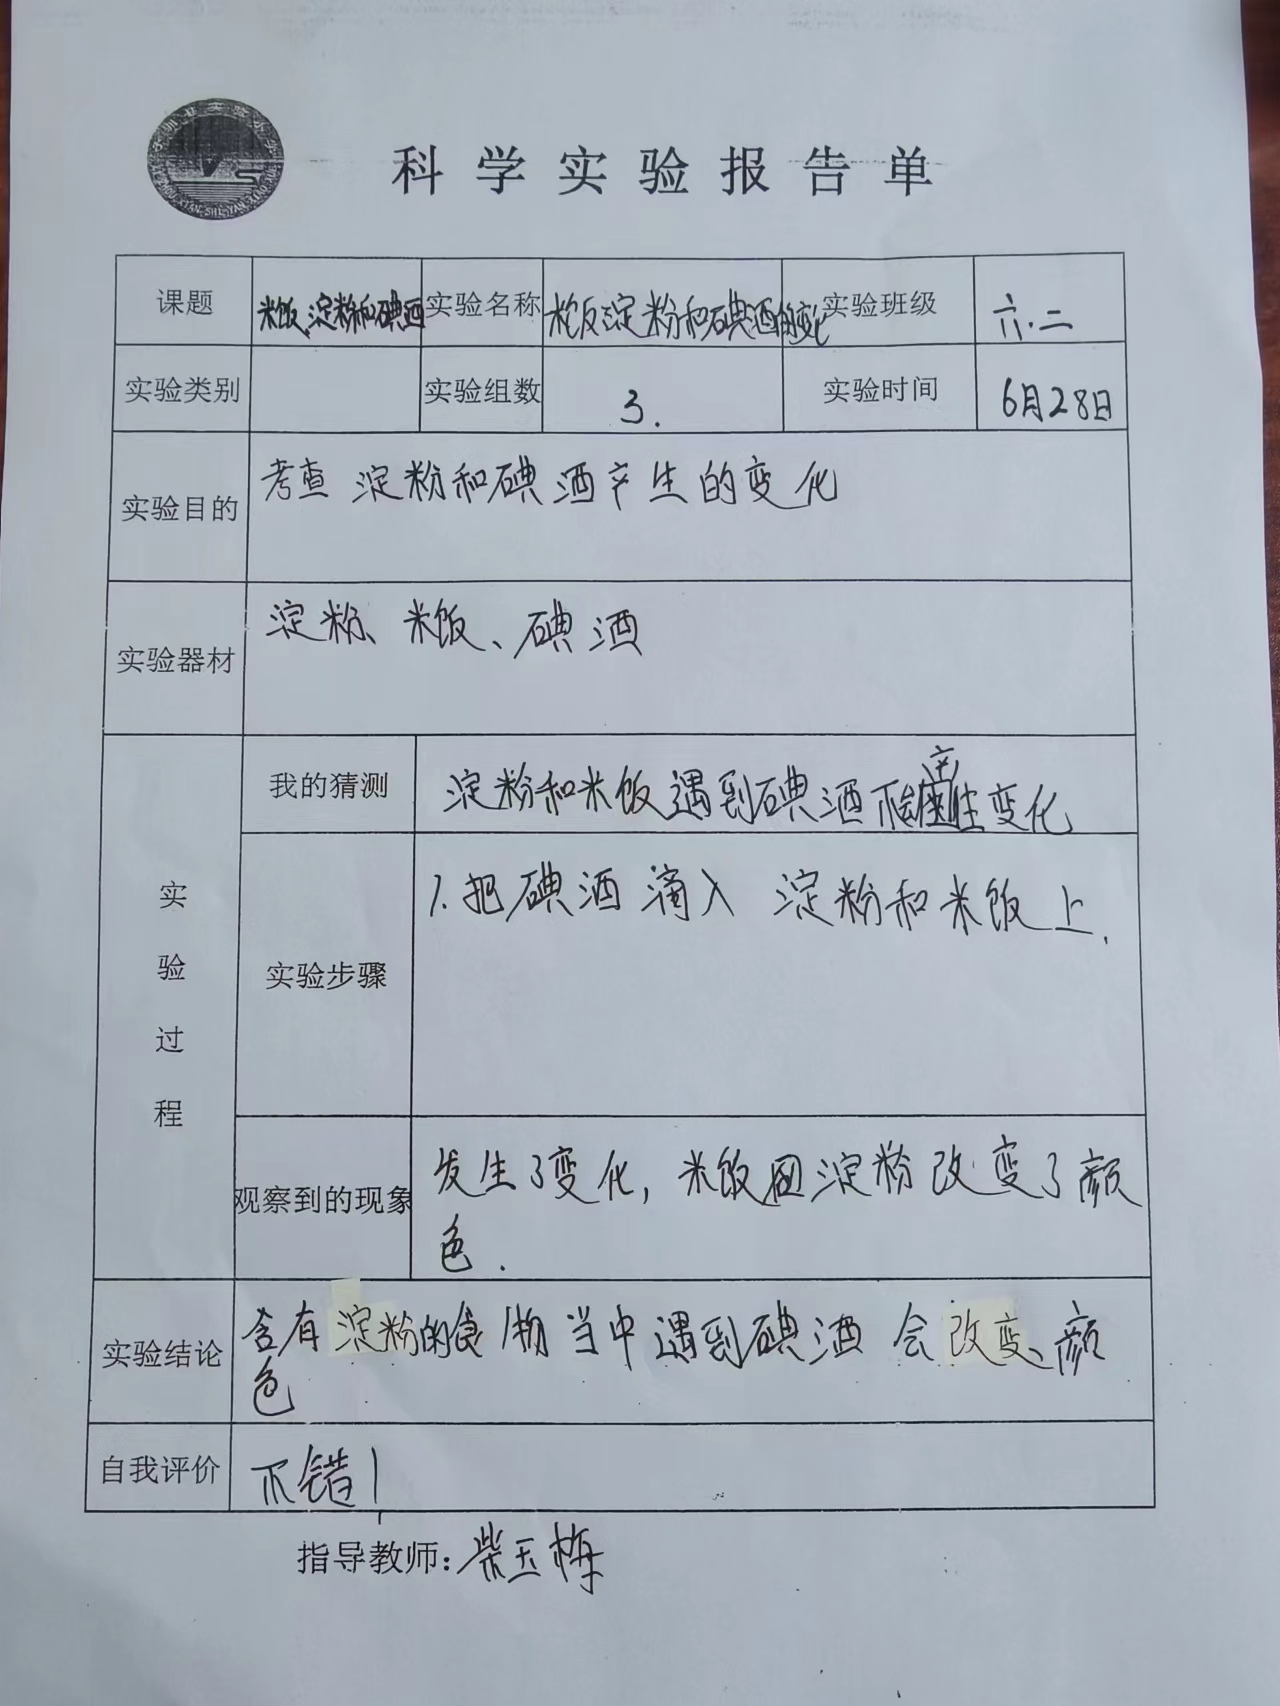 科学实验报告单
课题 米饭、淀粉和碘酒 实验名称 米饭淀粉和碘酒的变化 实验班级 六.二
实验类别 实验组数 3. 实验时间 6月28日
实验目的 考查 淀粉和碘酒产生的变化
实验器材 淀粉、米饭、碘酒
实验过程
我的猜测 淀粉和米饭遇到碘酒不会产生变化
实验步骤 1.把碘酒滴入 淀粉和米饭上.
观察到的现象 发生了变化,米饭 淀粉改变了颜
色.
实验结论 含有淀粉的食物当中遇到碘酒 会改变颜
色
自我评价 不错!
指导教师:柴玉栋